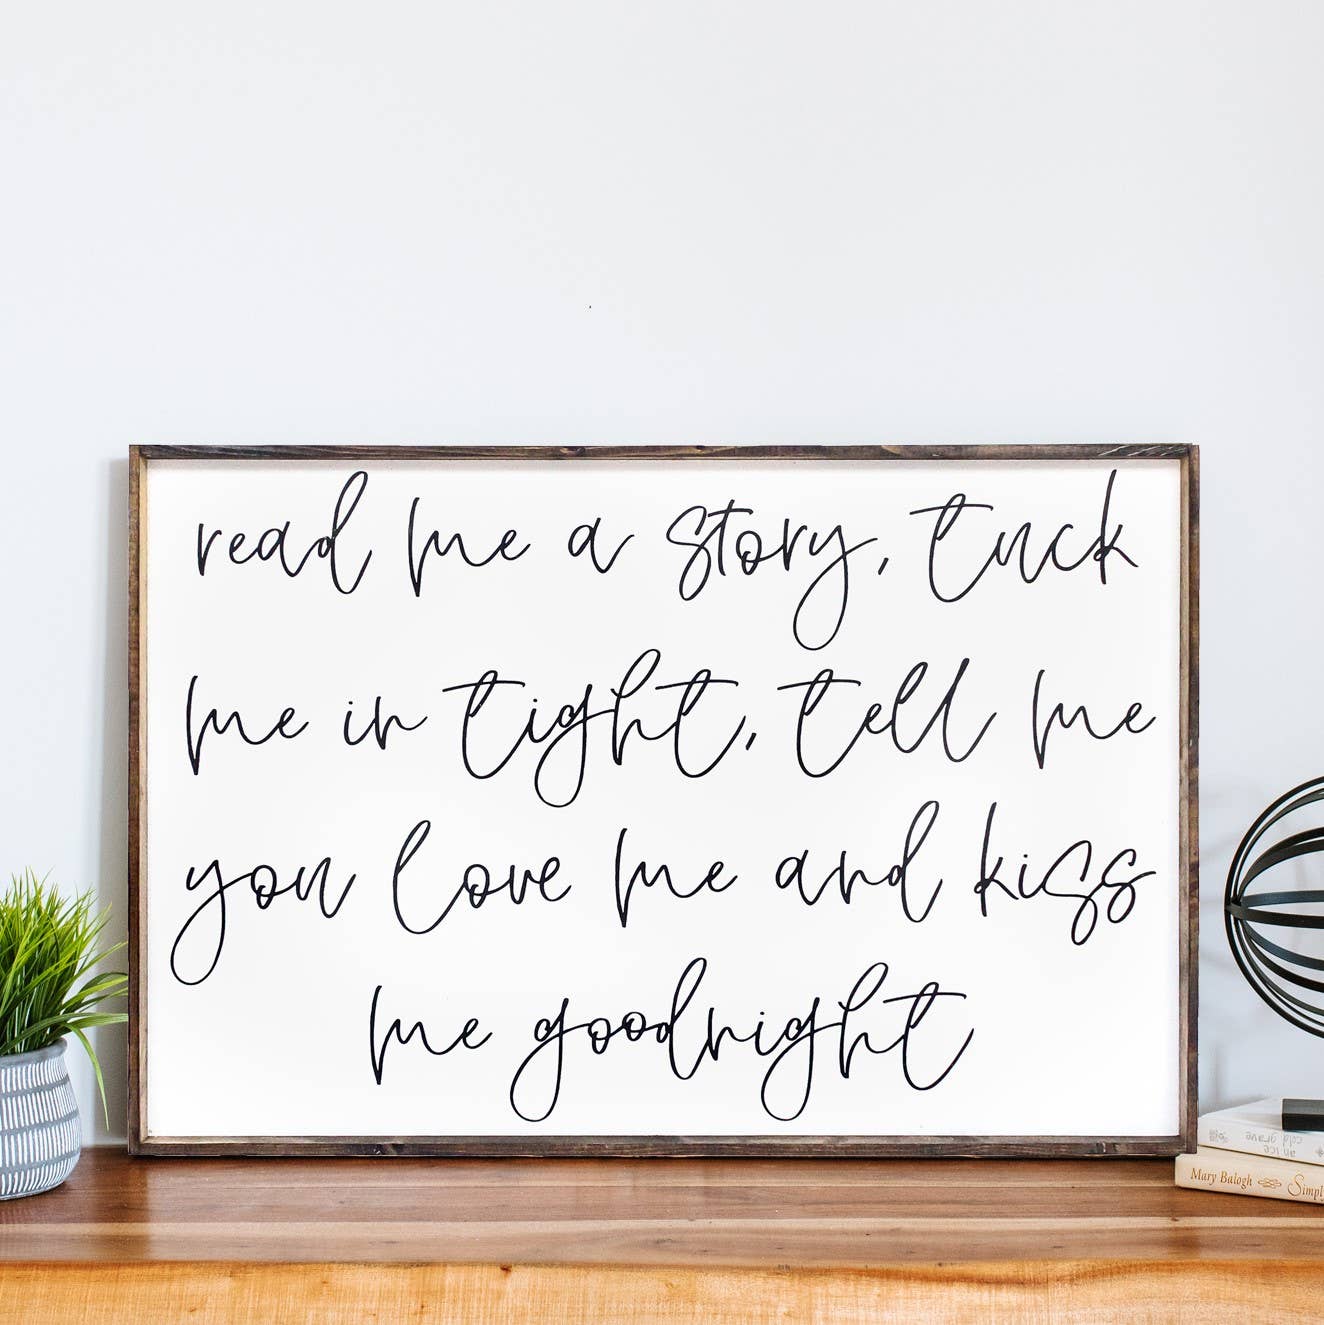 read me a story, tuck
me in tight, tell me
you love me and kiss
me goodnight
an ice
cold grave
Mary Balogh Simpl